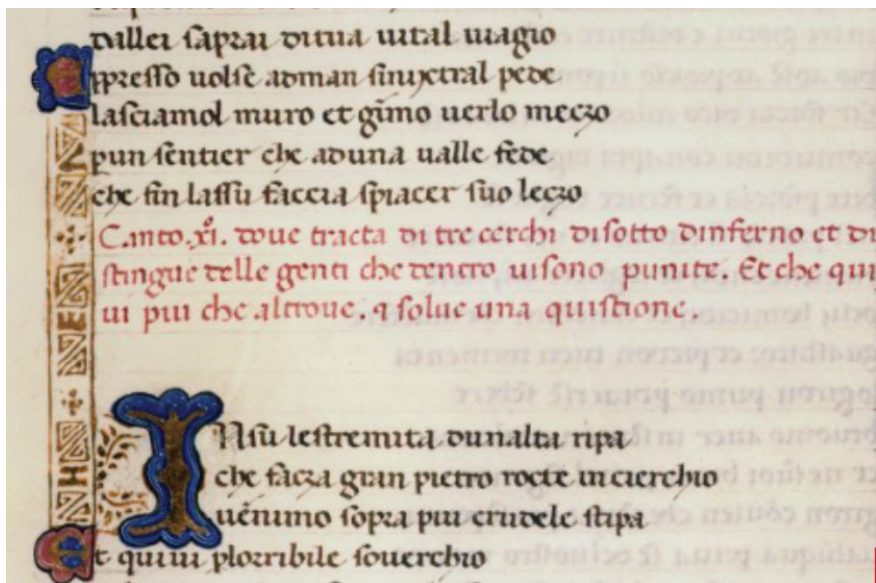 dallei saprai ditua uital uiagio
Appresso uolse adman sinixtral pede
lasciamol muro et gimo uerlo meczo
pun sentier che aduna ualle fede
che fin lassu faccia spiacer suo leczo
Canto .xi. doue tracta di tre cerchi disotto dinferno et di
stingue delle genti che dentro uisono punite. Et che qui
ui piu che altroue. 
solue una quistione.
INsu lestremita dunalta ripa
che facea gran pietre rocte in cierchio
uenimo sopra piu crudele stipa
Et quiui plorribile souerchio